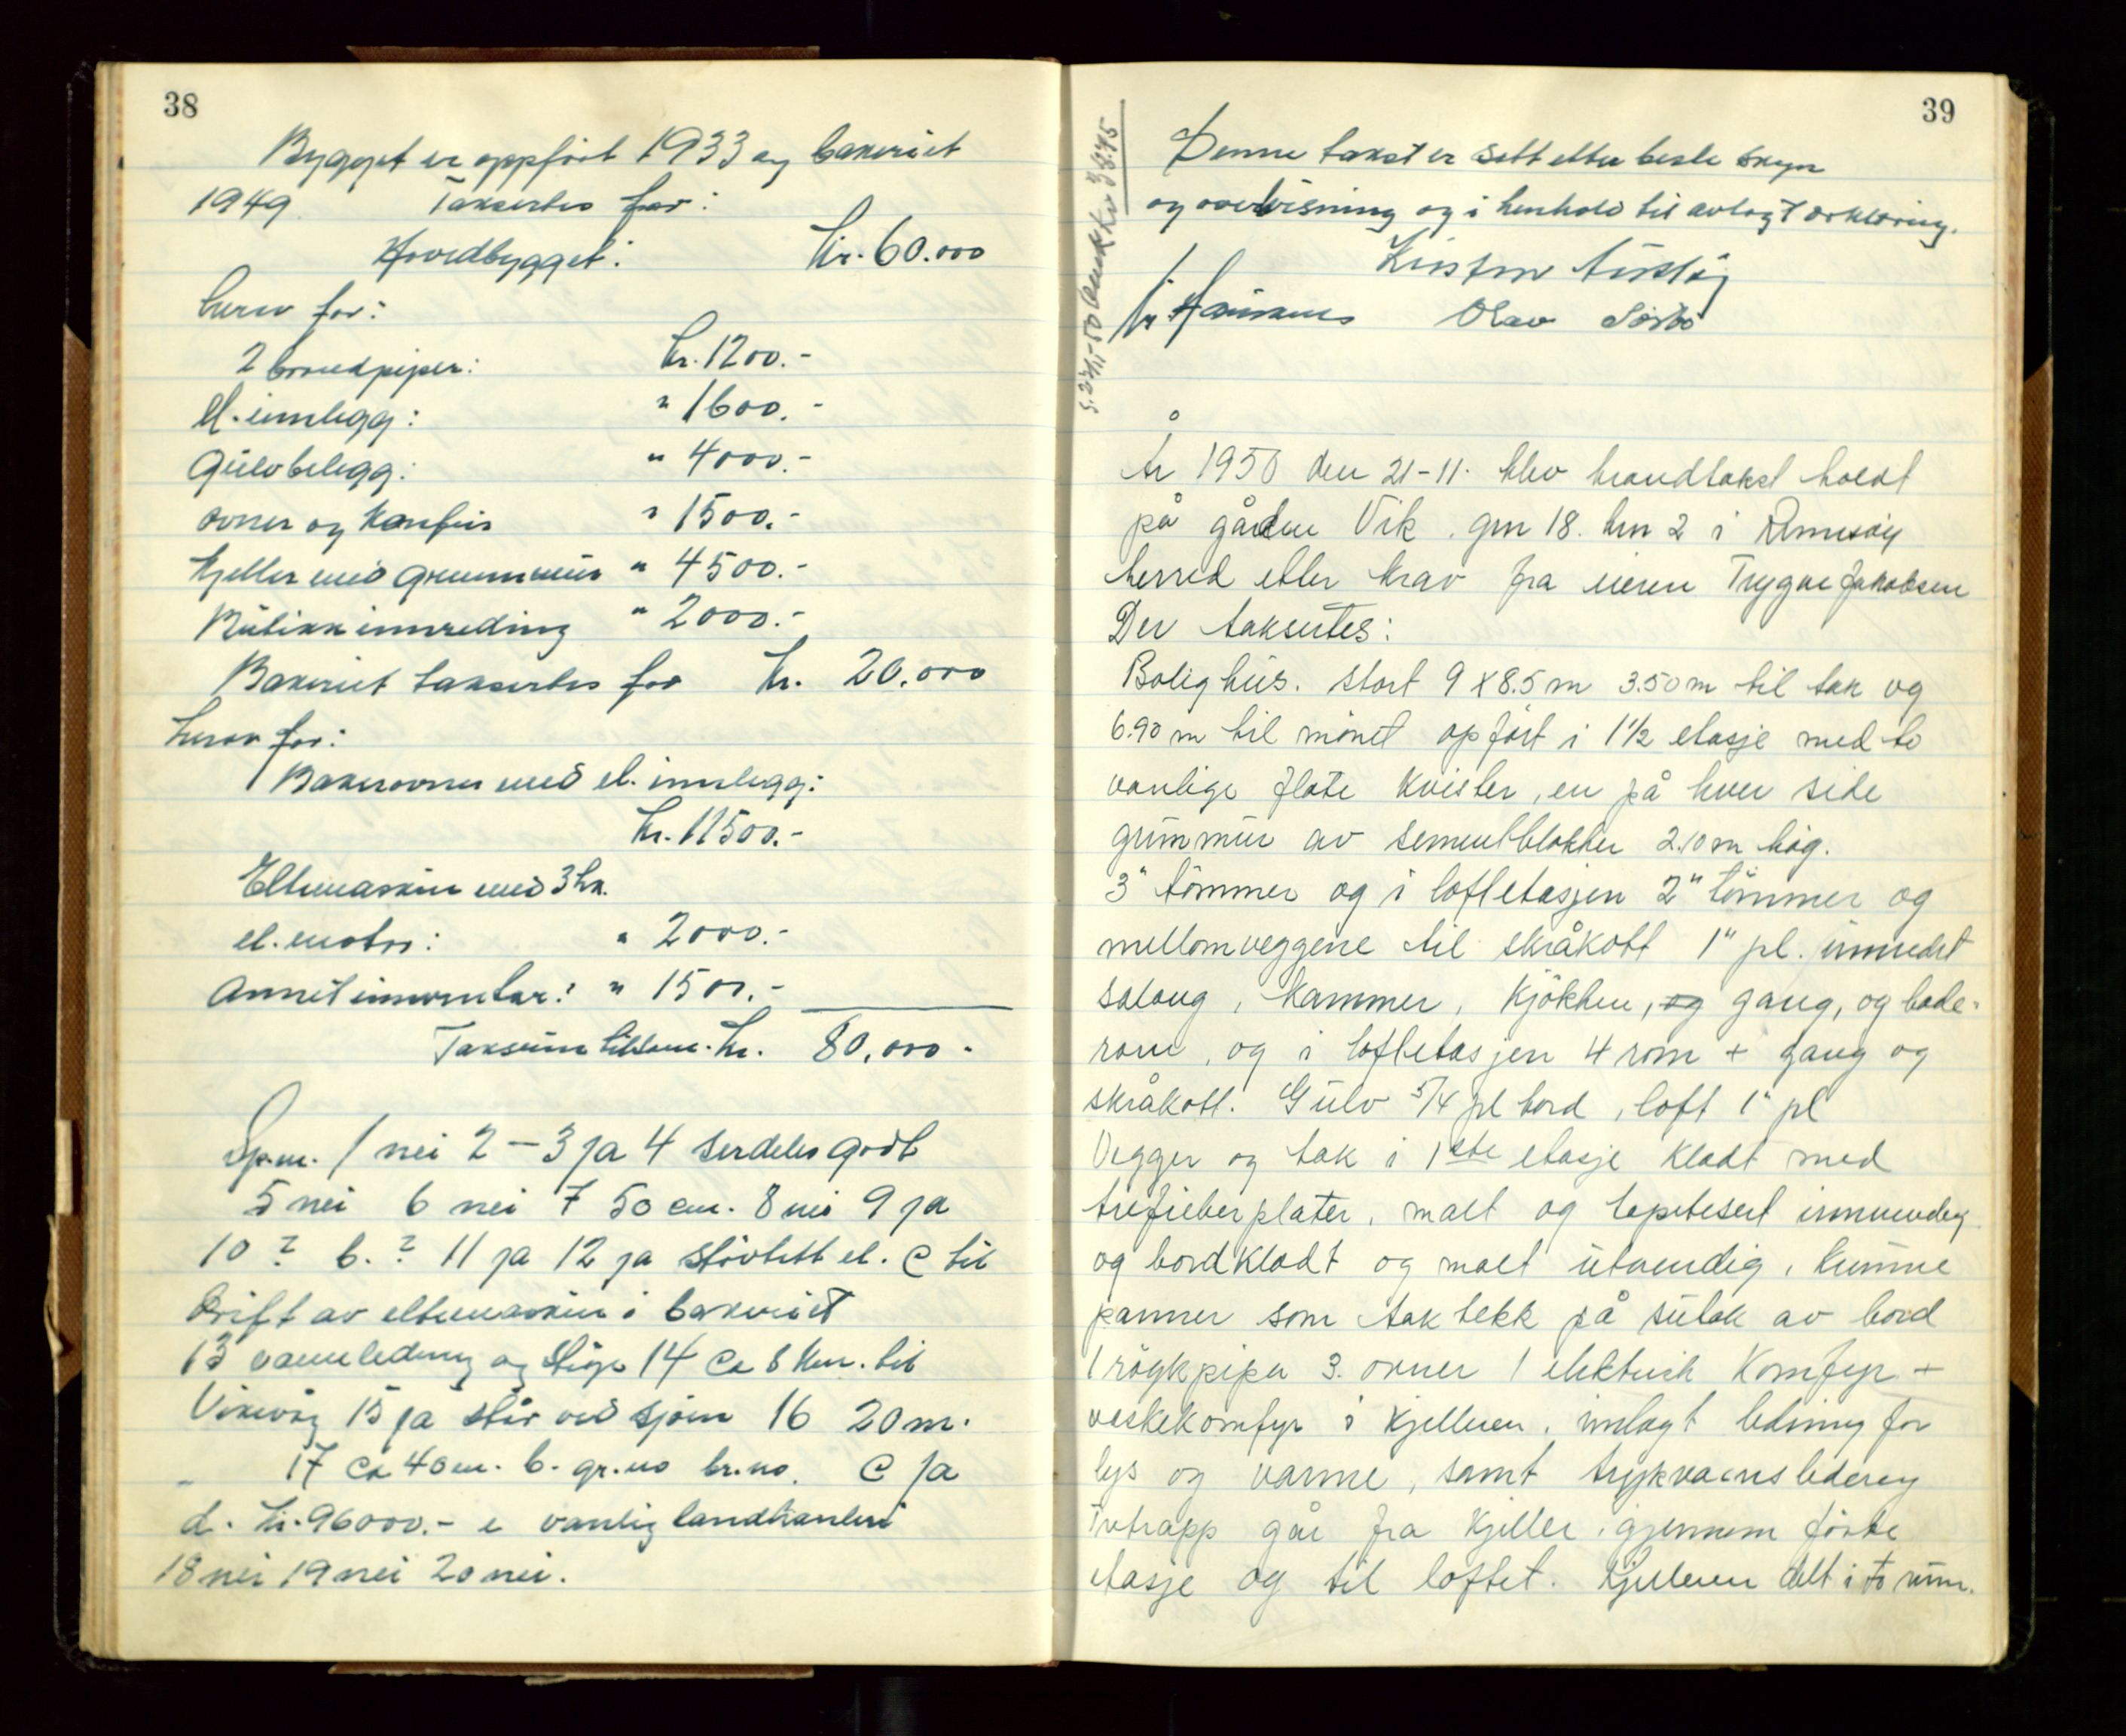 38
Bygget er oppført 1933 og bakeriet
1949. Takseres for:
Hovedbygget: kr. 60.000
herav for:
2 brandpiper: kr. 1200.-
el. innlegg: " 1600.-
Gulvbelegg: " 4000.-
ovner og komfur " 1500.-
kjeller med grunnmur " 4500.-
Butikkinnreding " 2000.-
Bakeriet takseres for kr. 20.000
herav for:
Bakerovner med el. innlegg:
kr. 11500.-
Eltemaskin med 3 hk.
el. motor: " 2000.-
Annet inventar: " 1500.-
Taksum tilsam. kr. 80.000.-
Spm. 1 nei 2 – 3 ja 4 serdeles godt
5 nei 6 nei 7 50 cm. 8 nei 9 ja
10 ? b. ? 11 ja 12 ja støvtett el. c til
drift av eltemaskin i bakeriet
13 vannledning og stige 14 Ca 8 km. til
Vikevåg 15 ja står ved sjøen 16 20 m.
17 ca 40 m. b. gr.no br.no. c ja
d. kr. 96000.- e vanlig landhanleri
18 nei 19 nei 20 nei.
39
Denne takst er sett etter beste skyn
og overbevisning og i henhold til avlagt erklæring.
Olav Sørbø
År 1950 den 21-11. blev brandtakst holdt
på gården Vik. gnr 18. bnr 2 i Rennesøy
herred etter krav fra eieren Trygve Jakobsen
Der takseres:
Bolighus. stort 9 x 8.5 m 3.50 m til tak og
6.90 m til mønet opført i 1 1/2 etasje med to
vanlige flate kvister, en på hver side
grunmur av sementblokker 2.10 m høg.
3" tømmer og i loftetasjen 2" tømmer og
mellomveggene til skråkott 1" pl. innredet
salong, kammer, kjøkken, og gang, og bade-
rom, og i loftetasjen 4 rom + gang og
skråkott. Gulv 5/4 pl bord, loft 1" pl
Vegger og tak i 1ste etasje kledt med
trefieberplater, malt og tapetsert innvendig
og bordkledt og malt utvendig,
panner som taktekk på sutak av bord
1 røykpipa 3. ovner 1 elektrisk Komfyr +
vaskekomfyr i kjelleren, innlagt ledning for
lys og varme, samt trykvannsledning
Tretrapp går fra kjeller, gjennem første
etasje og til loftet. Kjelleren delt i to rum.